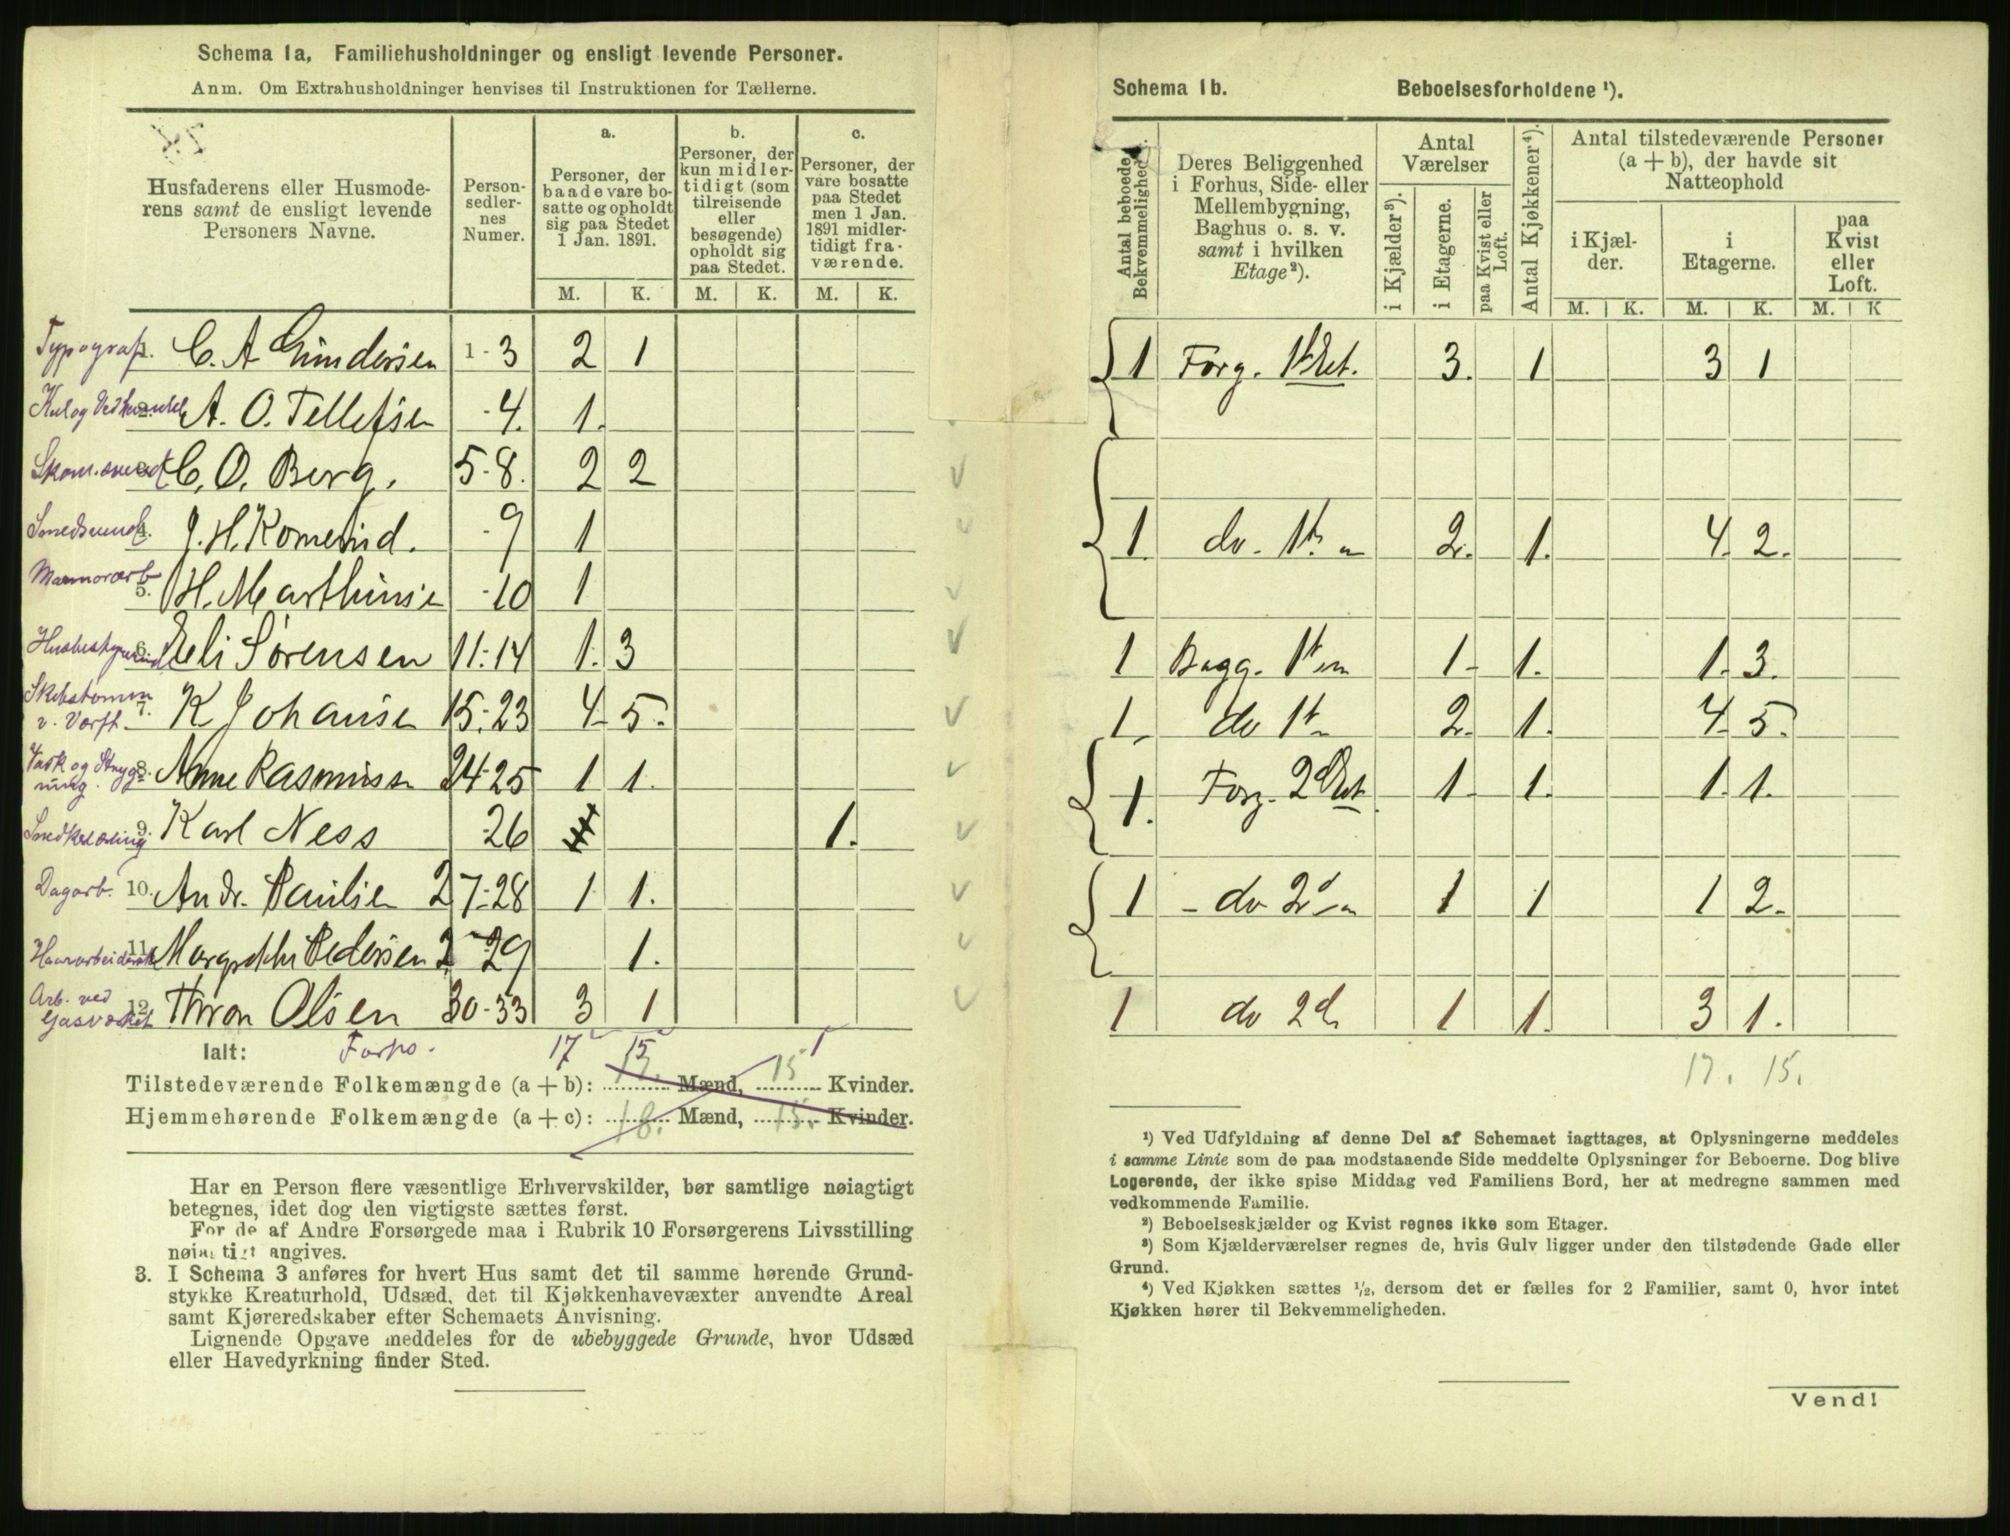 Schema 1a, Familiehusholdninger og ensligt levende Personer.
Anm. Om Extrahusholdninger henvises til Instruktionen for Tællerne.
Husfaderens eller Husmoderens samt de ensligt levende Personers Navne.
Personsedlernes Numer.
a. Personer, der baade vare bosatte og opholdt sig paa Stedet 1 Jan. 1891.
b. Personer, der kun midlertidigt (som tilreisende eller besøgende) opholdt sig paa Stedet.
c. Personer, der vare bosatte paa Stedet men 1 Jan. 1891 midlertidigt fraværende.
M. K. M. K. M. K.
Typograf. 1. C. A Gundersen 1-3 2 1
Kul og Vedhandel 2. A. O. Tellefsen -4. 1.
3. C. O. Berg. 5-8. 2 2
Smedsvend 4. J. H. -9 1
Marmorarb 5. H. Marthinse -10 1
6. Eli Sørensen 11-14 1. 3
v. Værft. 7. K Johanse 15-23 4 5.
Vask og Strygning. 8. Anne Rasmuss 24-25 1 1.
9. Karl Ness -26 1.
Dagarb. 10. Andr. Paulse 27-28 1 1.
11. Pedersen 2 -29 1.
Arb. ved Gasværket 12. Thron Olsen 30-33 3 1
Ialt: 17 15 1
Tilstedeværende Folkemængde (a + b): 17. Mænd, 15 Kvinder.
Hjemmehørende Folkemængde (a + c): 18. Mænd, 15. Kvinder.
Har en Person flere væsentlige Erhvervskilder, bør samtlige nøiagtigt
betegnes, idet dog den vigtigste sættes først.
For de af Andre Forsørgede maa i Rubrik 10 Forsørgerens Livsstilling
nøiagtigt angives.
3. I Schema 3 anføres for hvert Hus samt det til samme hørende Grund-
stykke Kreaturhold, Udsæd, det til Kjøkkenhavevæxter anvendte Areal
samt Kjøreredskaber efter Schemaets Anvisning.
Lignende Opgave meddeles for de ubebyggede Grunde, hvor Udsæd
eller Havedyrkning finder Sted.
Schema 1b. Beboelsesforholdene ¹).
Antal beboede Bekvemmeligheder.
Deres Beliggenhed i Forhus, Side- eller Mellembygning, Baghus o. s. v. samt i hvilken Etage²).
Antal Værelser
i Kjælder³).
i Etagerne.
paa Kvist eller Loft.
Antal Kjøkkener⁴).
Antal tilstedeværende Personer (a + b), der havde sit Natteophold
i Kjælder.
i Etagerne.
paa Kvist eller Loft.
M. K. M. K. M. K
1 Forg. 1ste Et. 3. 1 3 1
1. do. 1ste " 2. 1. 4. 2.
1 Bagg. 1st " 1- 1. 1. 3.
1. do 1st " 2. 1. 4 5.
1. Forg. 2den Et. 1- 1. 1. 1.
1 - do 2d " 1 1 1 2.
1 do 2d " 1 1. 3 1.
17. 15.
¹) Ved Udfyldning af denne Del af Schemaet iagttages, at Oplysningerne meddeles
i samme Linie som de paa modstaaende Side meddelte Oplysninger for Beboerne. Dog blive
Logerende, der ikke spise Middag ved Familiens Bord, her at medregne sammen med
vedkommende Familie.
²) Beboelseskjælder og Kvist regnes ikke som Etager.
³) Som Kjælderværelser regnes de, hvis Gulv ligger under den tilstødende Gade eller
Grund.
⁴) Ved Kjøkken sættes ½, dersom det er fælles for 2 Familier, samt 0, hvor intet
Kjøkken hører til Bekvemmeligheden.
Vend!